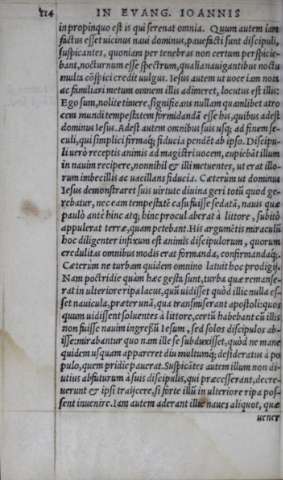 114 IN EVANG. IOANNIS
in propinquo est is qui serenat omnia. Quum autem iam
factus esset uicinus naui dominus, pauefacti sunt discipuli,
suspicantes, quoniam per tenebras non certum perspicie-
bant, nocturnum esse spectrum, qualia nauigantibus noctu
multa cōspici credit uulgus. Iesus autem ut uoce iam notis
ac familiari metum omnem illis adimeret, locutus est illis:
Ego sum, nolite timere, significans nullam quamlibet atro
cem mundi tempestatem formidandā esse his, quibus adest
dominus Iesus. Adest autem omnibus suis usq; ad finem se-
culi, qui simplici firmaq; fiducia pendēt ab ipso. Discipu-
li uerò receptis animis ad magistri uocem, cupiebāt illum
in nauim recipere, nonnihil & illi metuentes, ut erat illo-
rum imbecillis ac uacillans fiducia. Cæterùm ut dominus
Iesus demonstraret suis uirtute diuina geri totū quod ge-
rebatur, nec eam tempestatē casu fuisse sedatā, nauis quæ
paulò antè hinc atq; hinc procul aberat à littore, subitò
appulerat terræ, quam petebant. His argumētis miraculū
hoc diligenter infixum est animis discipulorum, quorum
credulitas omnibus modis erat formanda, confirmandaq;.
Cæterùm ne turbam quidem omnino latuit hoc prodigiū.
Nam postridie quàm hæc gesta sunt, turba quæ remanse-
rat in ulteriore ripa lacus, quū uidisset quòd illic nulla es-
set nauicula, præter unā, qua transmiserant apostoli: quos
quum uidissent soluentes à littore, certū habebant cū illis
non fuisse nauim ingressū Iesum, sed solos discipulos ab-
isse: mirabantur quo nam ille se subduxisset, quòd ne mane
quidem usquam appareret diu multumq; desideratus à po
pulo, quem pridie pauerat. Suspicātes autem illum non di-
utius abfuturum à suis discipulis, qui præcesserant, decre-
uerunt & ipsi traijcere, si fortè illū in ulteriore ripa pos-
sent inuenire. Iam autem aderant illic naues aliquot, quæ
uener